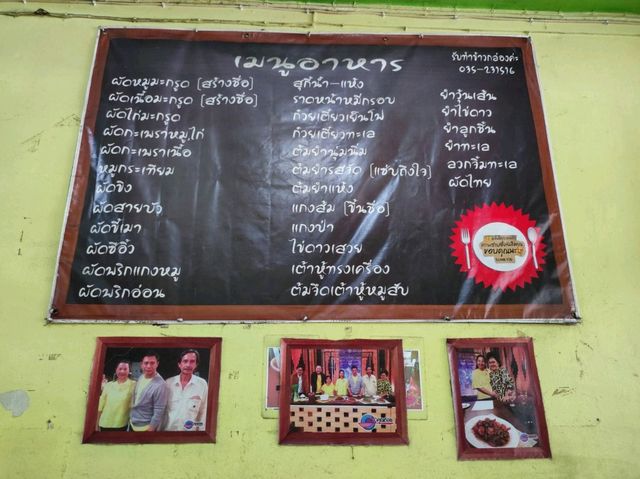 เมนูอาหาร
รับทำข้าวกล่องค่ะ
035-231516
ผัดหมูมะกรูด (สร้างชื่อ)
ผัดเนื้อมะกรูด (สร้างชื่อ)
ผัดไก่มะกรูด
ผัดกะเพราหมู,ไก่
ผัดกะเพราเนื้อ
หมูกระเทียม
ผัดขิง
ผัดสายบัว
ผัดขี้เมา
ผัดซีอิ๊ว
ผัดพริกแกงหมู
ผัดพริกอ่อน
สุกี้น้ำ-แห้ง
ราดหน้าหมี่กรอบ
ก๋วยเตี๋ยวเย็นไฟ
ก๋วยเตี๋ยวทะเล
ต้มยำนุ่มนิ่ม
ต้มยำรสจัด (แซ่บถึงใจ)
ต้มยำแห้ง
แกงส้ม (ขึ้นชื่อ)
แกงป่า
ไข่ดาวเสวย
เต้าหู้ทรงเครื่อง
ต้มจืดเต้าหู้หมูสับ
ยำวุ้นเส้น
ยำไข่ดาว
ยำลูกชิ้น
ยำทะเล
ลวกจิ้มทะเล
ผัดไทย
ขอบคุณนะ